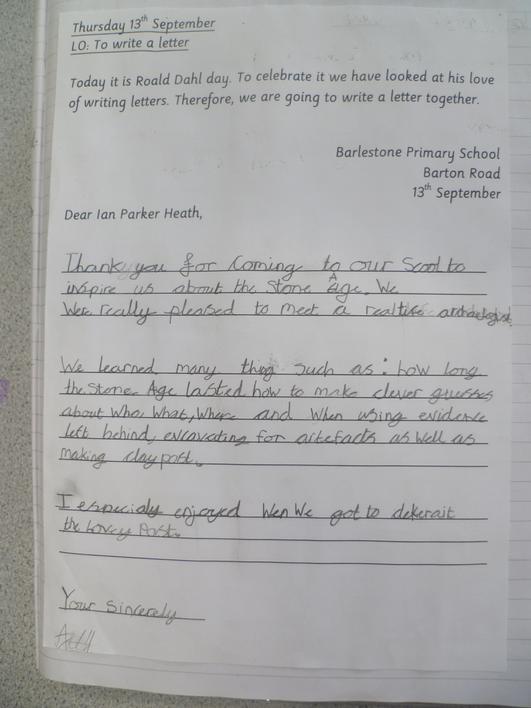 Thursday 13th September
LO: To write a letter
Today it is Roald Dahl day. To celebrate it we have looked at his love
of writing letters. Therefore, we are going to write a letter together.
Barlestone Primary School
Barton Road
13th September
Dear Ian Parker Heath,
Thank you for Coming to our Scool to
inspire us about the Stone Age. We
Were really pleased to meet a real archaeologist.
We learned many thing Such as : how long
the Stone Age lasted how to make clever guesses
about Who, What, Where and When using evidence
left behind, excavating for artefacts as Well as
making clay post.
I especialy enjoyed Wen We got to dekerait
the Lovey Posts.
Your Sincerely